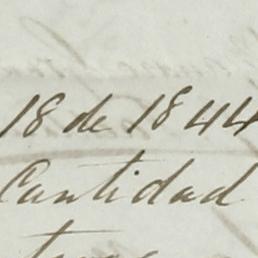 18 de 1844
Cantidad